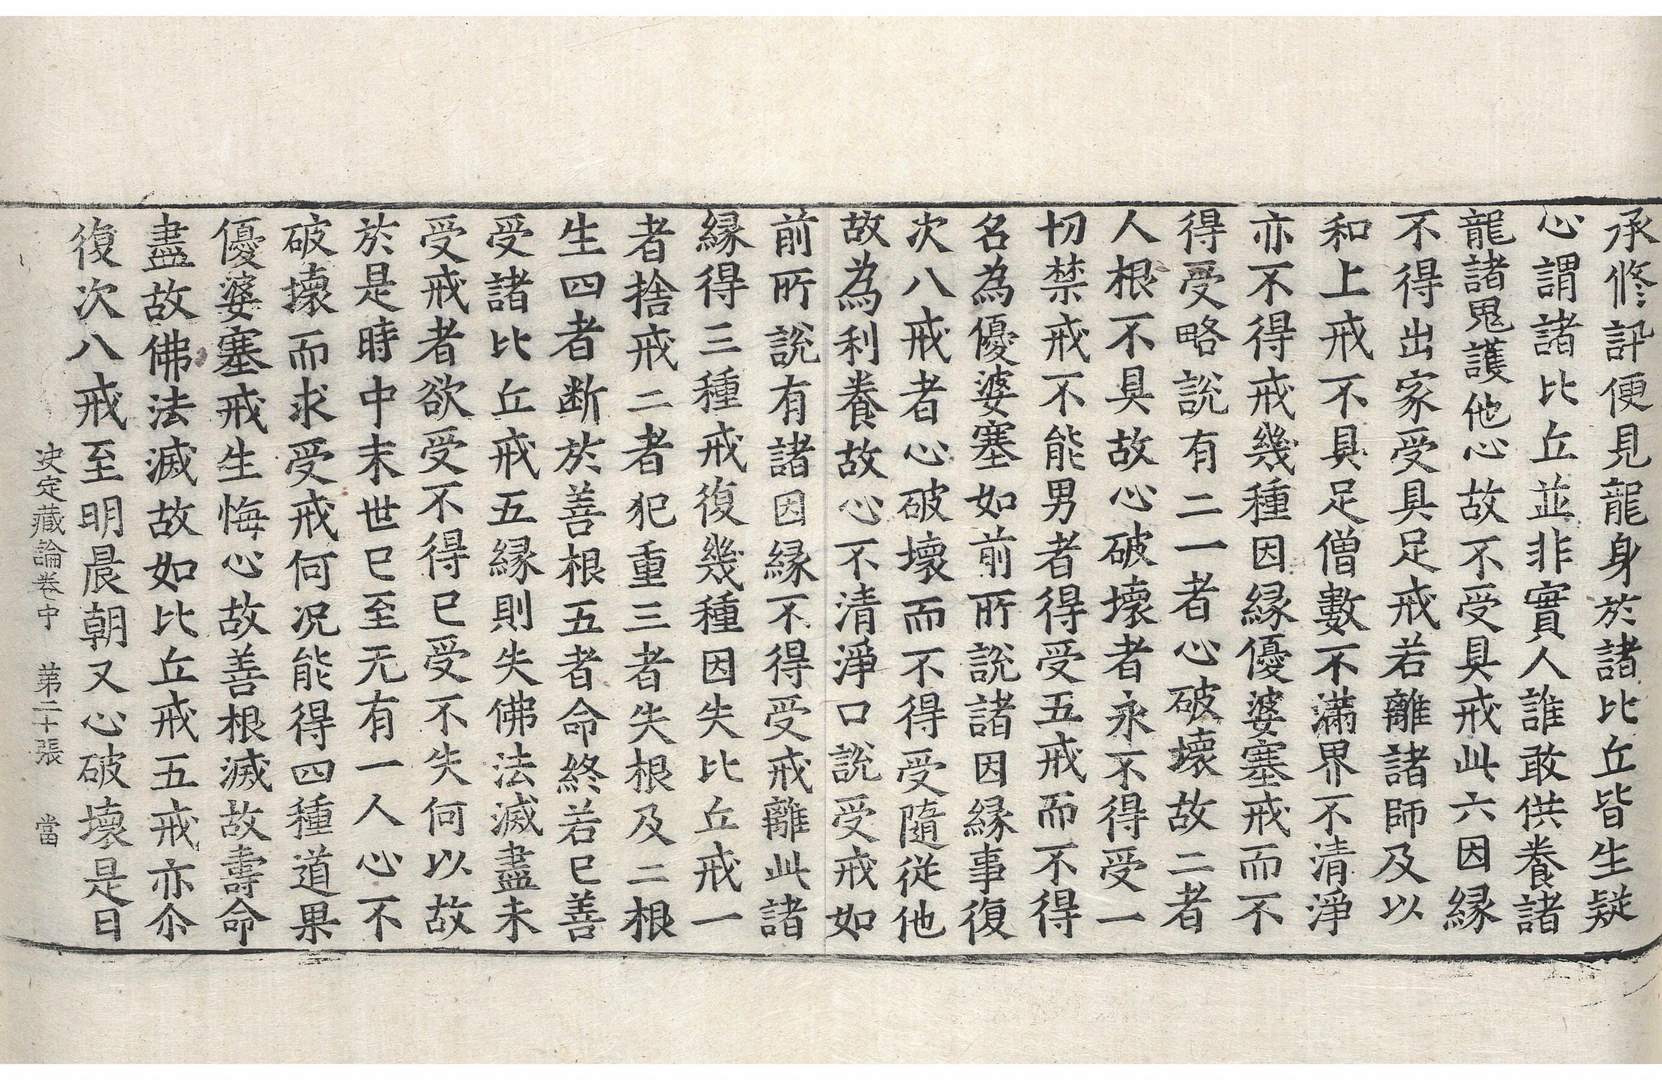 承修訊便見龍身於諸比丘皆生疑
心謂諸比丘並非實人誰敢供養諸
龍諸鬼護他心故不受具戒此六因縁
不得出家受具足戒若離諸師及以
和上戒不具足僧數不滿界不清淨
亦不得戒幾種因縁優婆塞戒而不
得受略說有二一者心破壞故二者
人根不具故心破壞者永不得受一
切禁戒不能男者得受五戒而不得
名為優婆塞如前所說諸因縁事復
次八戒者心破壞而不得受隨從他
故為利養故心不清淨口說受戒如
前所說有諸因縁不得受戒離此諸
縁得三種戒復幾種因失比丘戒一
者捨戒二者犯重三者失根及二根
生四者断於善根五者命終若巳善
受諸比丘戒五縁則失佛法滅盡未
受戒者欲受不得巳受不失何以故
於是時中末世巳至无有一人心不
破壞而求受戒何况能得四種道果
優婆塞戒生悔心故善根滅故壽命
盡故佛法滅故如比丘戒五戒亦尒
復次八戒至明晨朝又心破壞是日
決定藏論卷中　第二十張　當